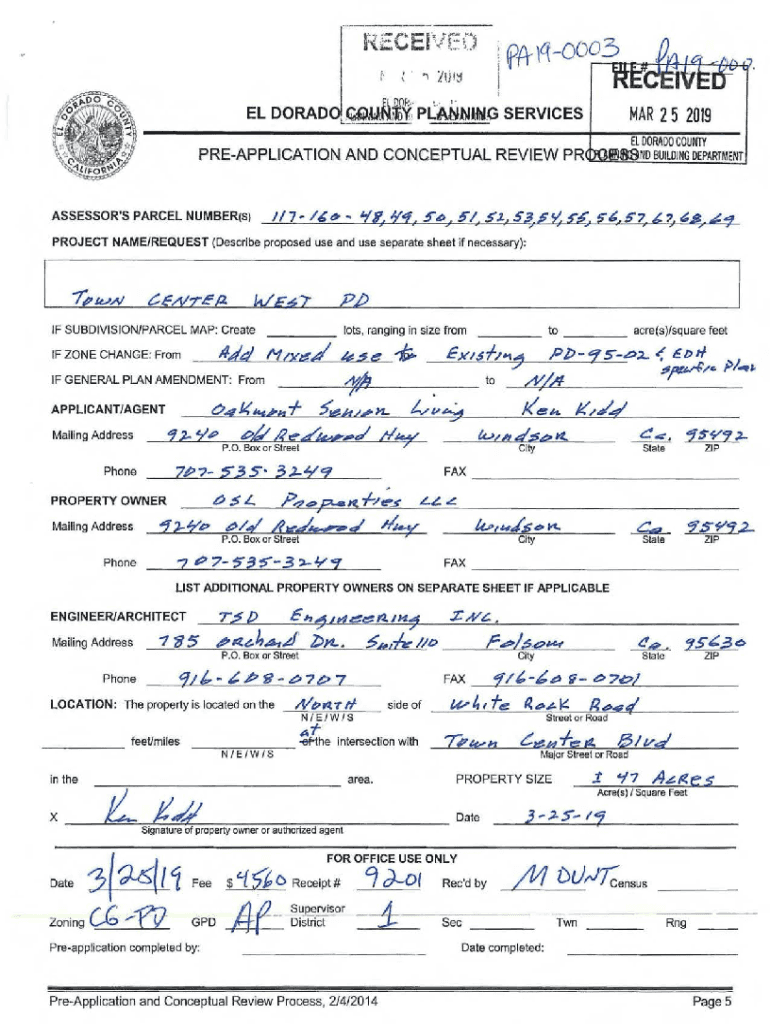 RECEIVED
PA19-0003
FILE # PA19-000
2019
RECEIVED
MAR 25 2019
EL DORADO COUNTY
AND BUILDING DEPARTMENT
EL DORADO COUNTY
CALIFORNIA
EL DORADO COUNTY PLANNING SERVICES
PRE-APPLICATION AND CONCEPTUAL REVIEW PROCESS
ASSESSOR'S PARCEL NUMBER(S) 117-160-48,49,50,51,52,53,54,55,56,57,67,68,69
PROJECT NAME/REQUEST (Describe proposed use and use separate sheet if necessary):
TOWN CENTER WEST PD
IF SUBDIVISION/PARCEL MAP: Create lots, ranging in size from to acre(s)/square feet
IF ZONE CHANGE: From Add Mixed use to Existing PD-95-02 & EDH
specific Plan
IF GENERAL PLAN AMENDMENT: From N/A to N/A
APPLICANT/AGENT Oakmont Senior Living Ken Kidd
Mailing Address 9240 Old Redwood Hwy Windsor Ca. 95492
P.O. Box or Street City State ZIP
Phone 707-535-3249 FAX
PROPERTY OWNER OSL Properties LLC
Mailing Address 9240 Old Redwood Hwy Windsor Ca 95492
P.O. Box or Street City State ZIP
Phone 707-535-3249 FAX
LIST ADDITIONAL PROPERTY OWNERS ON SEPARATE SHEET IF APPLICABLE
ENGINEER/ARCHITECT TSD Engineering INC.
Mailing Address 785 Orchard DR. Suite 110 Folsom Ca. 95630
P.O. Box or Street City State ZIP
Phone 916-608-0707 FAX 916-608-0701
LOCATION: The property is located on the NORTH side of White Rock Road
N / E / W / S Street or Road
at
feet/miles of the intersection with Town Center Blvd
N / E / W / S Major Street or Road
in the area. PROPERTY SIZE ± 47 ACRES
Acre(s) / Square Feet
X Ken Kidd Date 3-25-19
Signature of property owner or authorized agent
FOR OFFICE USE ONLY
Date 3/25/19 Fee $ 4560 Receipt # 9201 Rec'd by MOUNT Census
Zoning CG-PD GPD AP Supervisor District 1 Sec Twn Rng
Pre-application completed by: Date completed:
Pre-Application and Conceptual Review Process, 2/4/2014 Page 5